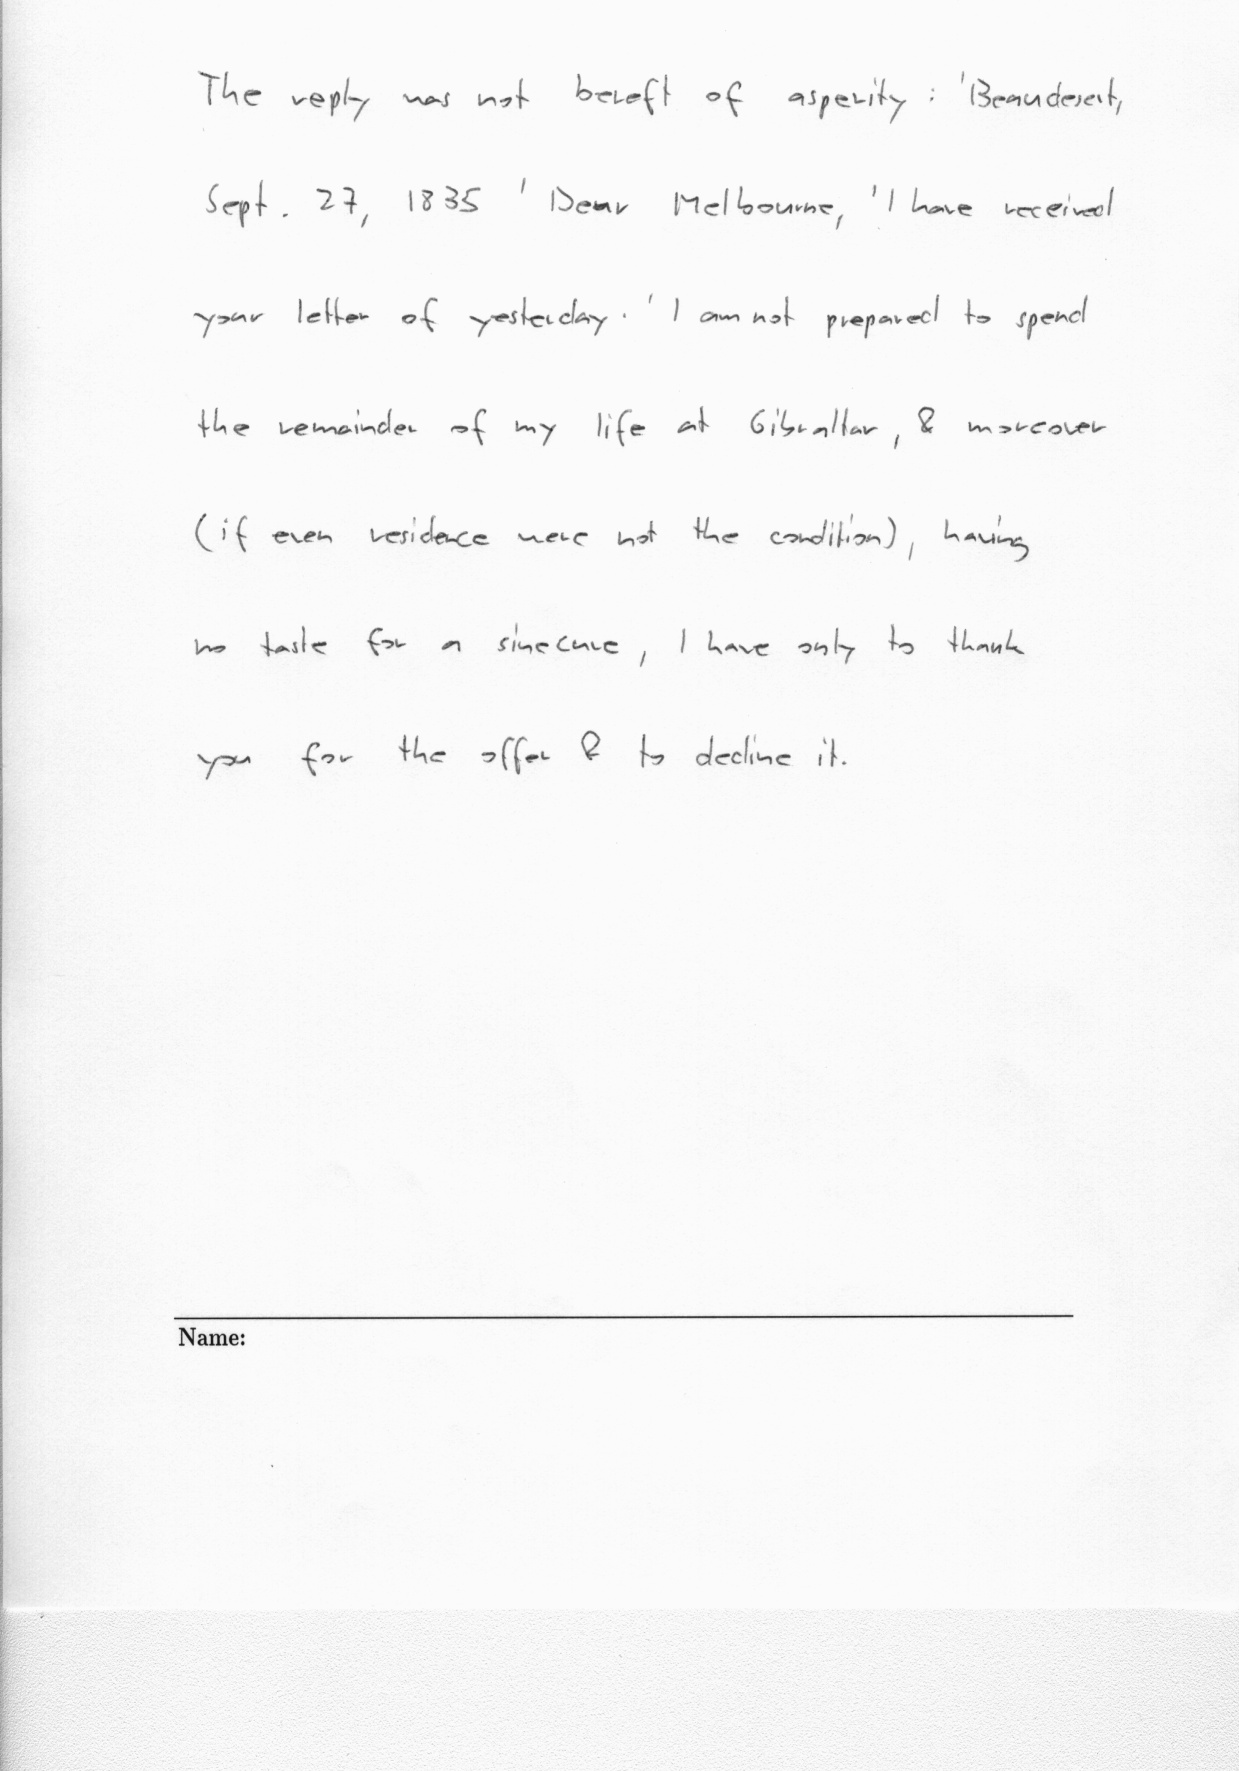 The reply was not bereft of asperity : 'Beaudesert,
Sept. 27, 1835 ' Dear Melbourne, 'I have received
your letter of yesterday. 'I am not prepared to spend
the remainder of my life at Gibraltar, & moreover
(if even residence were not the condition), having
no taste for a sinecure, I have only to thank
you for the offer & to decline it.
Name: